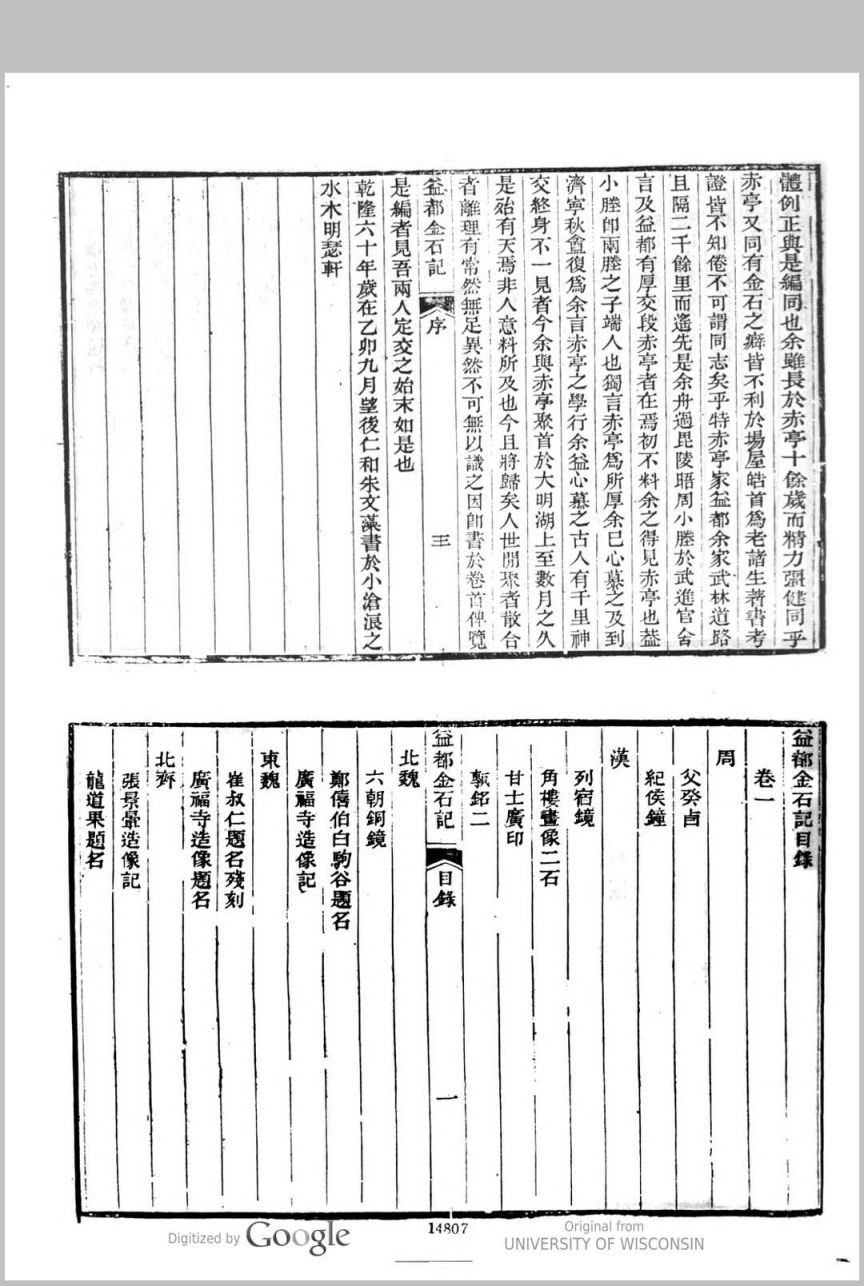 體例正與是編同也余雖長於赤亭十餘歲而精力彊健同乎
赤亭又同有金石之癖皆不利於場屋皓首爲老諸生著書考
證皆不知倦不可謂同志矣乎特赤亭家益都余家武林道路
且隔二千餘里而遙先是余舟過毘陵晤周小塍於武進官舍
言及益都有厚交段赤亭者在焉初不料余之得見赤亭也葢
小塍卽兩塍之子端人也獨言赤亭爲所厚余巳心慕之及到
濟寧秋盦復爲余言赤亭之學行余益心慕之古人有千里神
交終身不一見者今余與赤亭聚首於大明湖上至數月之久
是殆有天焉非人意料所及也今且將歸矣人世間聚者散合
者離理有常然無足異然不可無以識之因卽書於卷首俾覽
益都金石記 序 三
是編者見吾兩人定交之始末如是也
乾隆六十年歲在乙卯九月望後仁和朱文藻書於小滄浪之
水木明瑟軒
益都金石記目錄
卷一
周
父癸卣
紀侯鐘
漢
列宿鏡
角樓畫像二石
甘士廣印
甎銘二
益都金石記 目錄 一
北魏
六朝銅鏡
鄭僖伯白駒谷題名
廣福寺造像記
東魏
崔叔仁題名殘刻
廣福寺造像題名
北齊
張景暈造像記
龍道果題名
Digitized by Google
14807
Original from
UNIVERSITY OF WISCONSIN